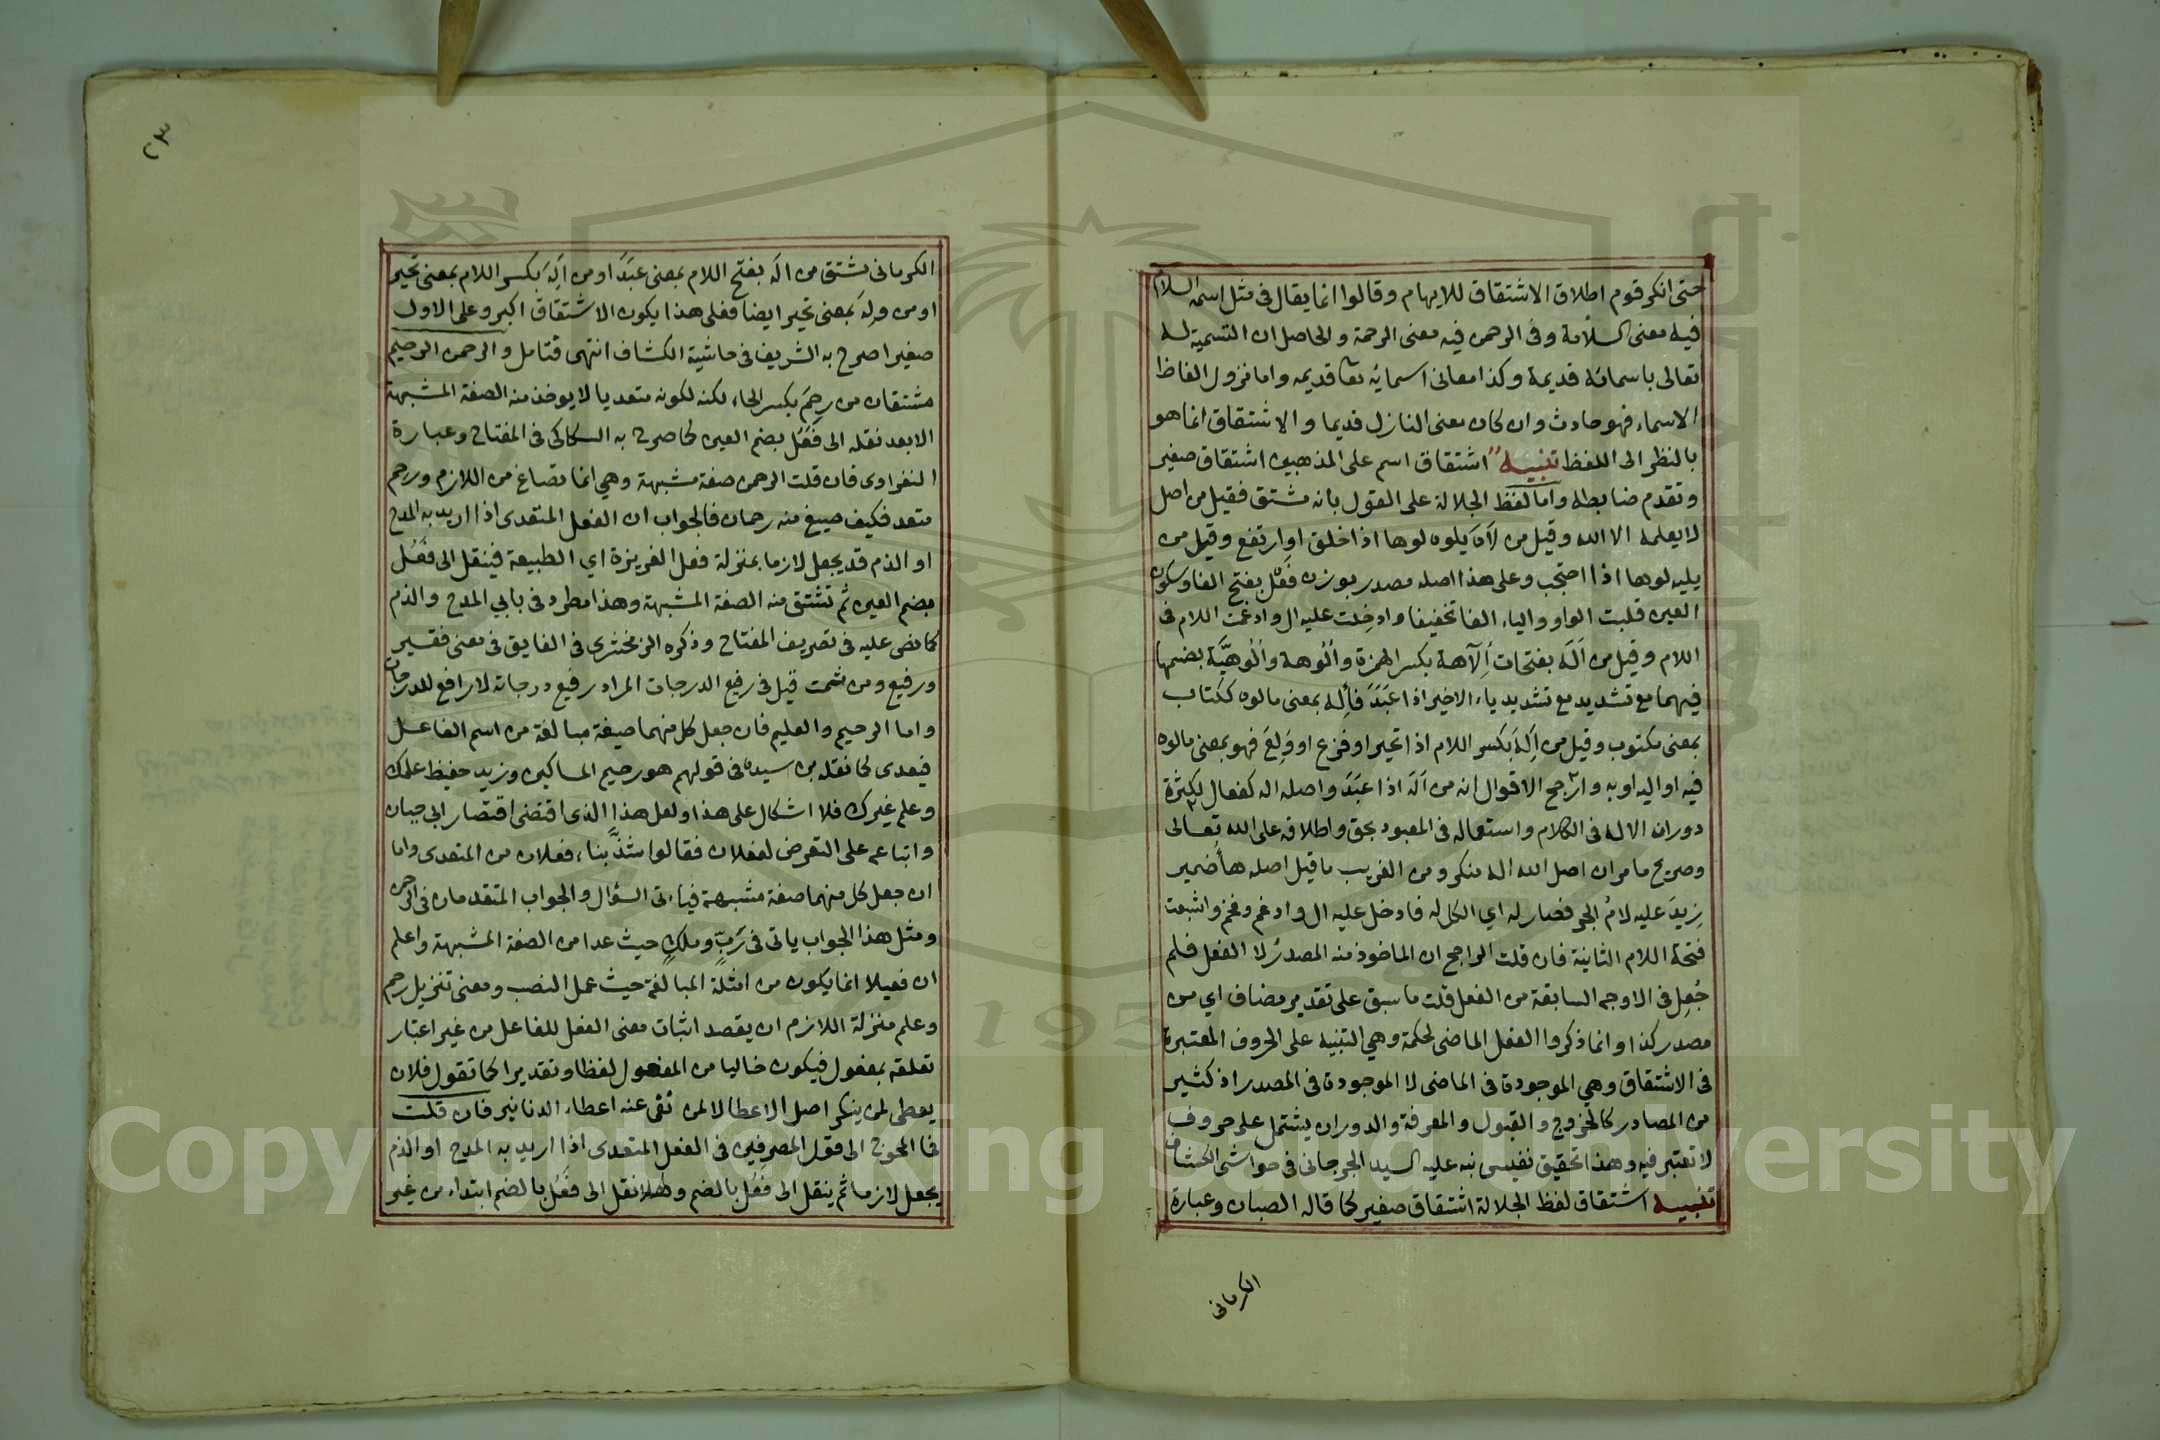 حتى انكر قوم اطلاق الاشتقاق للايهام وقالوا انما يقال في مثل اسمه السلام
فيه معنى السلامة وفي الرحمن فيه معنى الرحمة والحاصل ان التسمية له
تعالى باسمائه قديمة وكذا معاني اسمايه تعا قديمه واما نزول الفاظ
الاسماء فهو حادث وان كان معنى النازل قديما والاشتقاق انما هو
بالنظر الى اللفظ تنبيه اشتقاق اسم على المذهبين اشتقاق صغير
وتقدم ضابطه واما لفظ الجلالة على القول بانه مشتق فقيل من اصل
لا يعلمه الا الله وقيل من لَاهَ يلوه لوها اذا خلق او ارتفع وقيل من
يليه لوها اذا احتجب وعلى هذا اصله مصدر بوزن فَعْل بفتح الفا وسكون
العين قلبت الواو والياء الفا تخفيفا وادخلت عليه ال وادغمت اللام في
اللام وقيل من اَلَهَ بفتحات اِلَاهة بكسر الهمزة وأُلُوهة وأُلُوهيَّة بضمها
فيهما مع تشديد مع تشديد ياء الاخير اذا عَبَدَ فاِله بمعنى مالوه ككتاب
بمعنى مكتوب وقيل من اَلِهَ بكسر اللام اذا تحير او فزع او وَلِعَ فهو بمعنى مالوه
فيه او اليه او به وارجح الاقوال انه من اَلَهَ اذا عَبَدَ واصله اله كفعال لكثرة
دوران الاله في الكلام واستعماله في المعبود بحق واطلاقه على الله تعالى
وصريح ما مر ان اصل الله اله منكر ومن الغريب ما قيل اصله هاء ضمير
زِيدَ عليه لامُ الجر فصار له اي الكل له فادخل عليه ال وادغم وفخم واشبعت
فتحة اللام الثانية فان قلت الراجح ان الماخوذ منه المصدرُ لا الفعل فلم
جُعِل في الاوجه السابقة من الفعل قلت ما سبق على تقدير مضاف اي من
مصدر كذا وانما ذكروا الفعل الماضي لحكمة وهي التنبيه على الحروف المعتبرة
في الاشتقاق وهي الموجودة في الماضي لا الموجودة في المصدر اذ كثير
من المصادر كالخروج والقبول والمعرفة والدوران يشتمل على حروف
لا تعتبر فيه وهذا تحقيق نفيس نبه عليه السيد الجرجاني في حواشي الكشاف
تنبيه اشتقاق لفظ الجلالة اشتقاق صغير كما قاله الصبان وعبارة
الكرماني
٢٣
الكرماني مشتق من اله بفتح اللام بمعنى عَبَدَ او من اَلِهَ بكسر اللام بمعنى تحير
او من وَلِهَ بمعنى تحير ايضا فعلى هذا يكون الاشتقاق اكبر وعلى الاول
صغيرا صرح به الشريف في حاشية الكشاف انتهى فتامل والرحمن الرحيم
مشتقان من رحِمَ بكسر الحاء لكنه لكونه متعديا لا يوخذ منه الصفة المشبهة
الا بعد نقله الى فَعُل بضم العين كما صرح به السكاكي في المفتاح وعبارة
النفراوى فان قلت الرحمن صفة مشبهة وهي انما تصاغ من اللازم ورحم
متعد فكيف صيغ منه رحمان فالجواب ان الفعل المتعدى اذا اريد به المدح
او الذم قد يجعل لازما بمنزلة فعل الغريزة اي الطبيعة فينقل الى فَعُل
بضم العين ثم تشتق منه الصفة المشبهة وهذا مطرد في بابي المدح والذم
كما نص عليه في تصريف المفتاح وذكره الزمخشرى في الفايق في معنى فقير
ورفيع ومن ثمت قيل في رفيع الدرجات المراد رفيع درجاته لا رافع للدرجات
واما الرحيم والعليم فان جعل كل منهما صيغة مبالغة من اسم الفاعل
فيعدى كما نقله بن سيده في قولهم هو رحيم المساكين وزيد حفيظ علمك
وعلم غيرك فلا اشكال على هذا ولعل هذا الذى اقتضى اقتصار ابى حيان
واتباعه على التعرض لفعلان فقالوا شذ بناء فعلان من المتعدى واما
ان جعل كل منهما صفة مشبهة فياتى السؤال والجواب المتقدمان في الرحمن
ومثل هذا الجواب ياتى في رَبّ وملكٍ حيث عدا من الصفة المشبهة واعلم
ان فعيلا انما يكون من امثلة المبالغة حيث عمل النصب ومعنى تنزيل رحم
وعلم منزلة اللازم ان يقصد اثبات معنى الفعل للفاعل من غير اعتبار
تعلقه بمفعول فيكون خاليا من المفعول لفظا وتقديرا كما تقول فلان
يعطى لمن ينكر اصل الاعطا لا لمن نفى عنه اعطاء الدنانير فان قلت
فما المحوج الى قول المصرفين في الفعل المتعدى اذا اريد به المدح او الذم
يجعل لازما ثم ينقل الى فَعُل بالضم وهلا نقل الى فَعُل بالضم ابتداء من غير
Copyright © King Saud University
1957